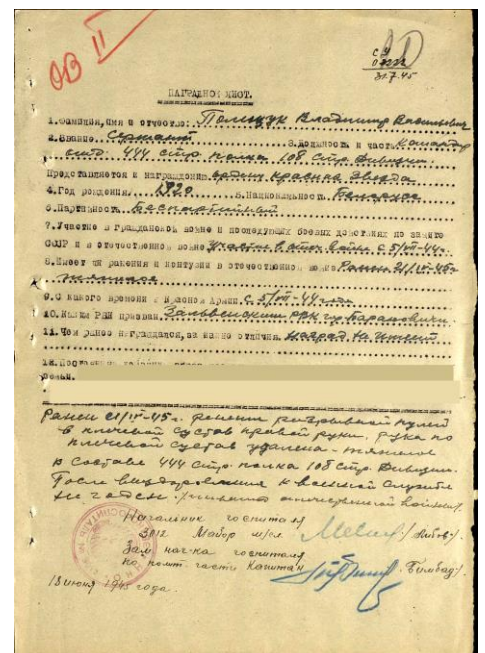 ОВ II
31.7.45
НАГРАДНОЙ ЛИСТ.
1. Фамилия, имя и отчество: Полищук Владимир Васильевич
2. Звание Сержант 3. Должность и часть Командир
отд. 444 стр. полка 108 стр. дивизии.
Представляется к награждению орден Красная Звезда
4. Год рождения 1920 5. Национальность Белорус
6. Партийность Беспартийный
7. Участие в гражданской войне и последующих боевых действиях по защите
СССР и в отечественной войне Участие в отеч. войне с 5/VII-44г.
8. Имеет ли ранения и контузии в отечественной войне Ранен 21/IV-45г.
тяжелое
9. С какого времени в Красной Армии С 5/VII-44 года
10. Каким РВК призван Зельвенским РВК г. Барановичи
11. Чем ранее награждался, за какие отличия наград не имеет
12.
семьи.
Ранен 21/IV-45г. ранение разрывной пулей
в плечевой сустав правой руки, рука по
плечевой сустав удалена - тяжелое
в составе 444 стр. полка 108 стр. дивизии.
После выздоровления к военной службе
не годен. отечественной войны.
Начальник госпиталя
3012 Майор м/сл
Зам. нач-ка госпиталя
по полит. части Капитан /Бимбад/
18 июня 1945 года.